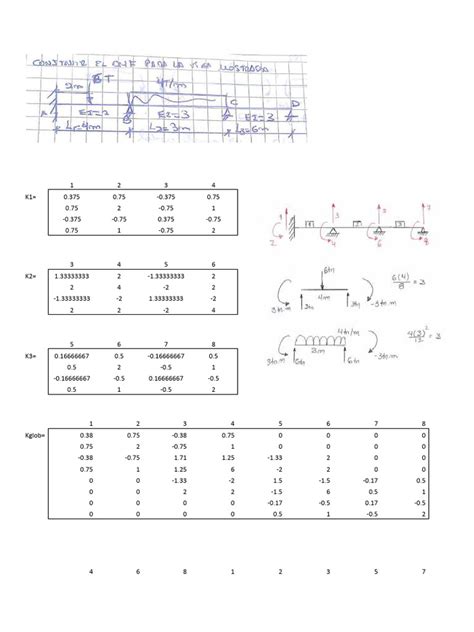 CONSTRUIR EL DMF PARA LA VIGA MOSTRADA
2m 6T 4T/m
A B C D
EI=2 EI=3 EI=3
L1=4m L2=3m L3=6m
1 2 3 4
K1= 0.375 0.75 -0.375 0.75
0.75 2 -0.75 1
-0.375 -0.75 0.375 -0.75
0.75 1 -0.75 2
1 3 5 7
2 4 6 8
1 2 3
3 4 5 6
K2= 1.33333333 2 -1.33333333 2
2 4 -2 2
-1.33333333 -2 1.33333333 -2
2 2 -2 4
6tn
4m
3tn.m 3tn 3tn -3tn.m
6(4)/8 = 3
5 6 7 8
K3= 0.16666667 0.5 -0.16666667 0.5
0.5 2 -0.5 1
-0.16666667 -0.5 0.16666667 -0.5
0.5 1 -0.5 2
4tn/m
3m
3tn.m 6tn 6tn -3tn.m
4(3)²/12 = 3
1 2 3 4 5 6 7 8
Kglob= 0.38 0.75 -0.38 0.75 0 0 0 0
0.75 2 -0.75 1 0 0 0 0
-0.38 -0.75 1.71 1.25 -1.33 2 0 0
0.75 1 1.25 6 -2 2 0 0
0 0 -1.33 -2 1.5 -1.5 -0.17 0.5
0 0 2 2 -1.5 6 0.5 1
0 0 0 0 -0.17 -0.5 0.17 -0.5
0 0 0 0 0.5 1 -0.5 2
4 6 8 1 2 3 5 7